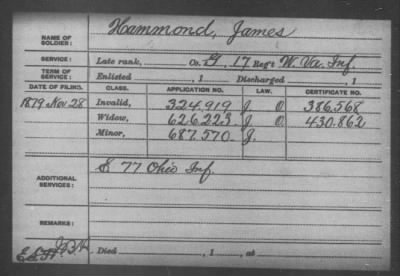 NAME OF SOLDIER: Hammond, James
SERVICE: Late rank, Co. G, 17 Reg't W. Va. Inf.
TERM OF SERVICE: Enlisted , 1 Discharged , 1
DATE OF FILING. CLASS. APPLICATION NO. LAW. CERTIFICATE NO.
1879 Nov 28 Invalid, 324.919 J O. 386.568
Widow, 626.223 J O. 430.862
Minor, 687.570 J.
ADDITIONAL SERVICES: S 77 Ohio Inf.
REMARKS:
Died , 1 , at